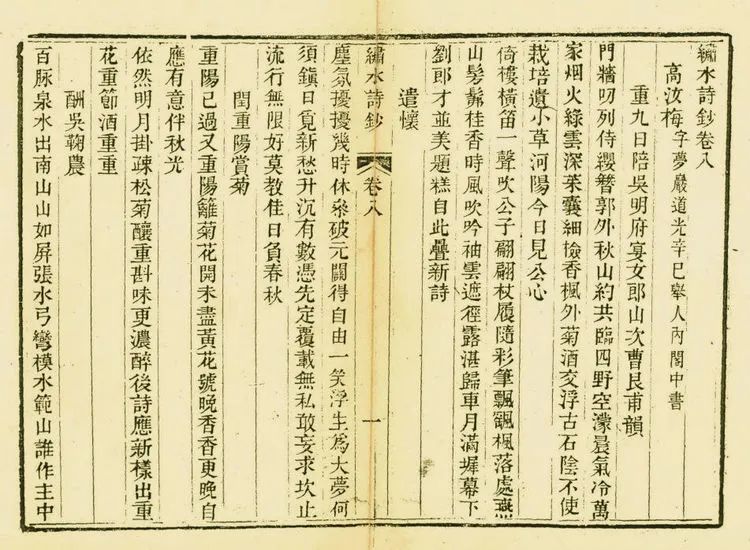 繡水詩鈔卷八
高汝梅字夢巖道光辛巳舉人內閣中書
重九日陪吳明府宴女郎山次曹艮甫韻
門牆叨列侍纓簪郭外秋山約共臨四野空濛晨氣冷萬
家烟火綠雲深茱囊細檢香楓外菊酒交浮古石陰不使
栽培遺小草河陽今日見公心
倚樓橫笛一聲吹公子翩翩杖履隨彩筆飄飄楓落處燕
山髣髴桂香時風吹吟袖雲遮徑露湛歸車月滿墀幕下
劉郎才並美題糕自此疊新詩
遣懷
繡水詩鈔 卷八 一
塵氛擾擾幾時休叅破元關得自由一笑浮生為大夢何
須鎮日覓新愁升沉有數憑先定覆載無私敢妄求坎止
流行無限好莫教佳日負春秋
閏重陽賞菊
重陽已過又重陽籬菊花開未盡黃花號晚香香更晚自
應有意伴秋光
依然明月掛疎松菊釀重斟味更濃醉後詩應新樣出重
花重節酒重重
酬吳鞠農
百脉泉水出南山山如屏張水弓彎模水範山誰作主中